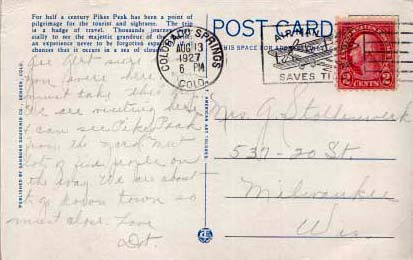 For half a century Pikes Peak has been a point of
pilgrimage for the tourist and sightseer. The trip
is a badge of travel. Thousands journey
ually to see the majestic grandeur of the
an experience never to be forgotten
chances that it occurs in a sea of clouds
were here
must take this
We are visiting here
I can see Pikes Peak
from the yard. Met
lots of fine people on
the way. We are about
to go down town so
must close. Love
Dot.
PUBLISHED BY SANBORN SOUVENIR CO., DENVER, COLO.
AMERICAN ART COLORED
POST CARD
THIS SPACE FOR ADDRESS
COLORADO SPRINGS
AUG 13
6 PM
1927
COLO.
AIR MAIL
SAVES TI
2 CENTS 2
Mrs. G.
537-20 St.
Milwaukee
Wis.